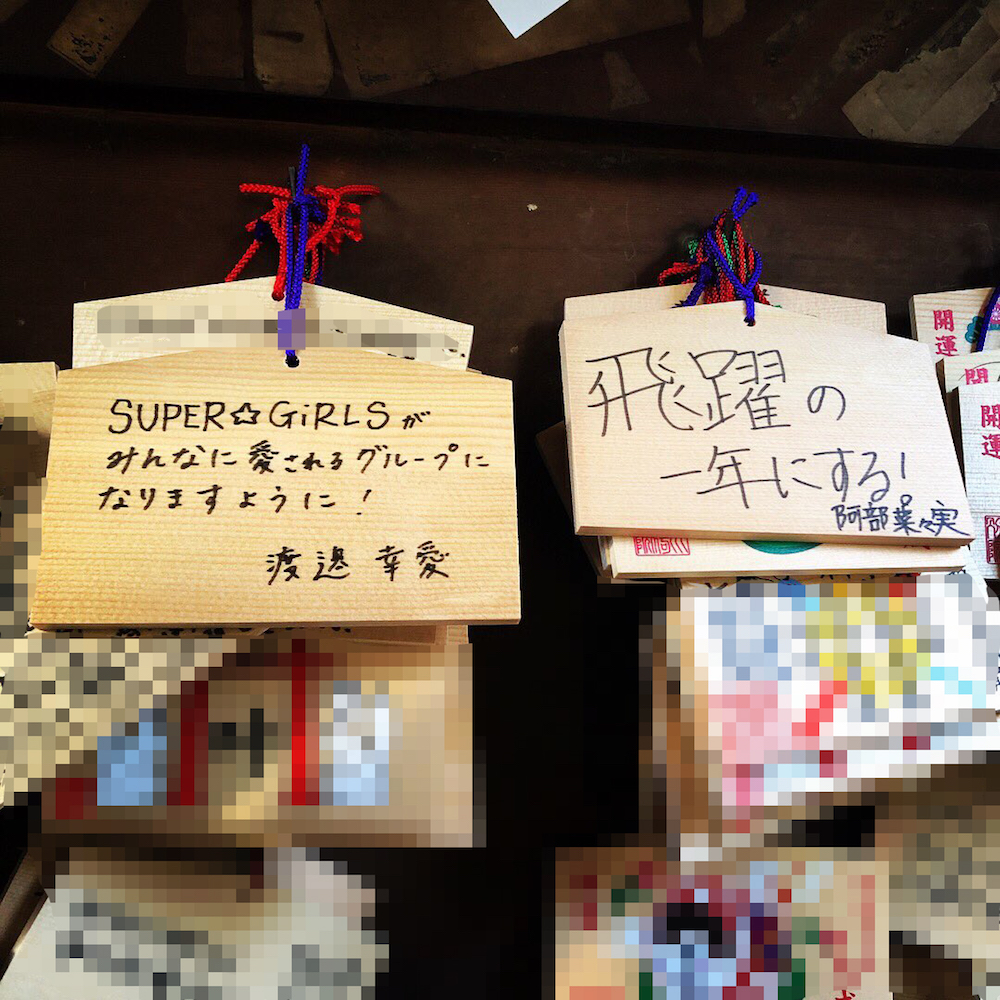 SUPER☆GiRLSが
みんなに愛されるグループに
なりますように！
渡邉 幸愛
飛躍の
一年にする!
阿部菜々実
開運
開
開運